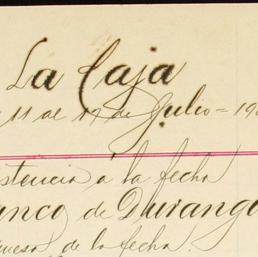 La Caja
11 al 17 de Julio = 19
stencia a la fecha
anco de Durango
de la fecha